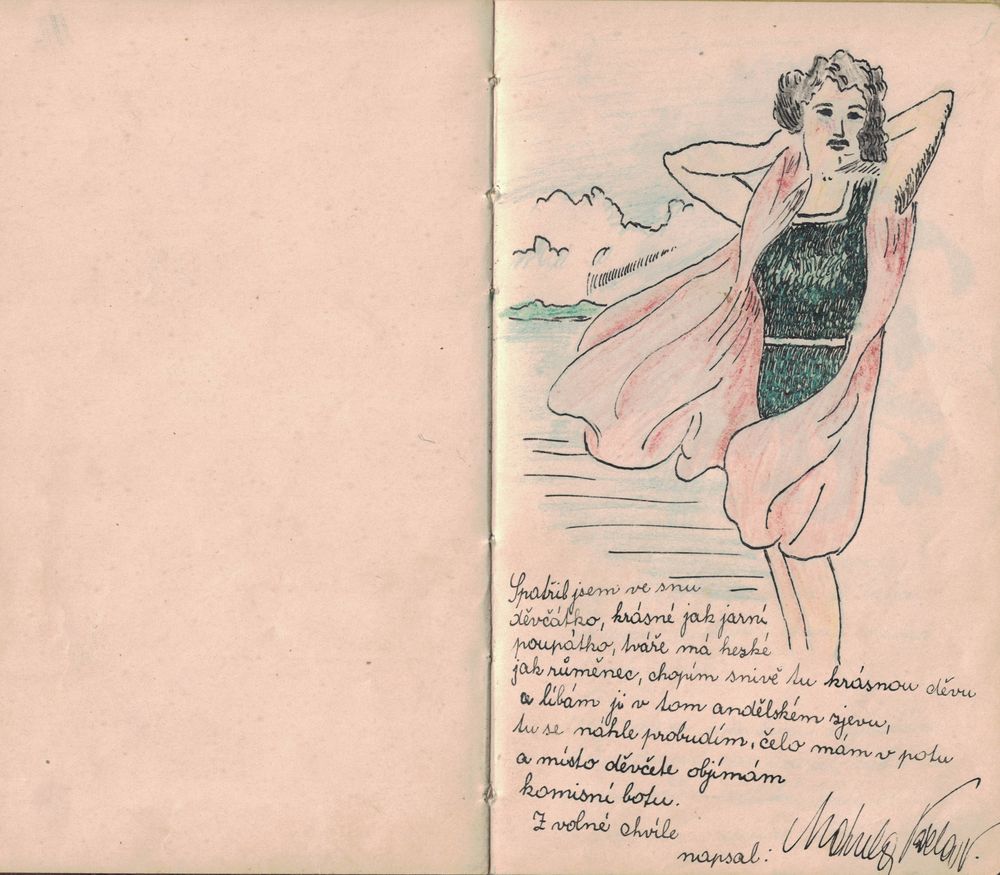 Spatřil jsem ve snu
děvčátko, krásné jak jarní
poupátko, tváře má hezké
jak růměnec, chopím snivě tu krásnou děvu
a líbám ji v tom andělském zjevu,
tu se náhle probudím, čelo mám v potu
a místo děvčete objímám
komisní botu.
Z volné chvíle
napsal: